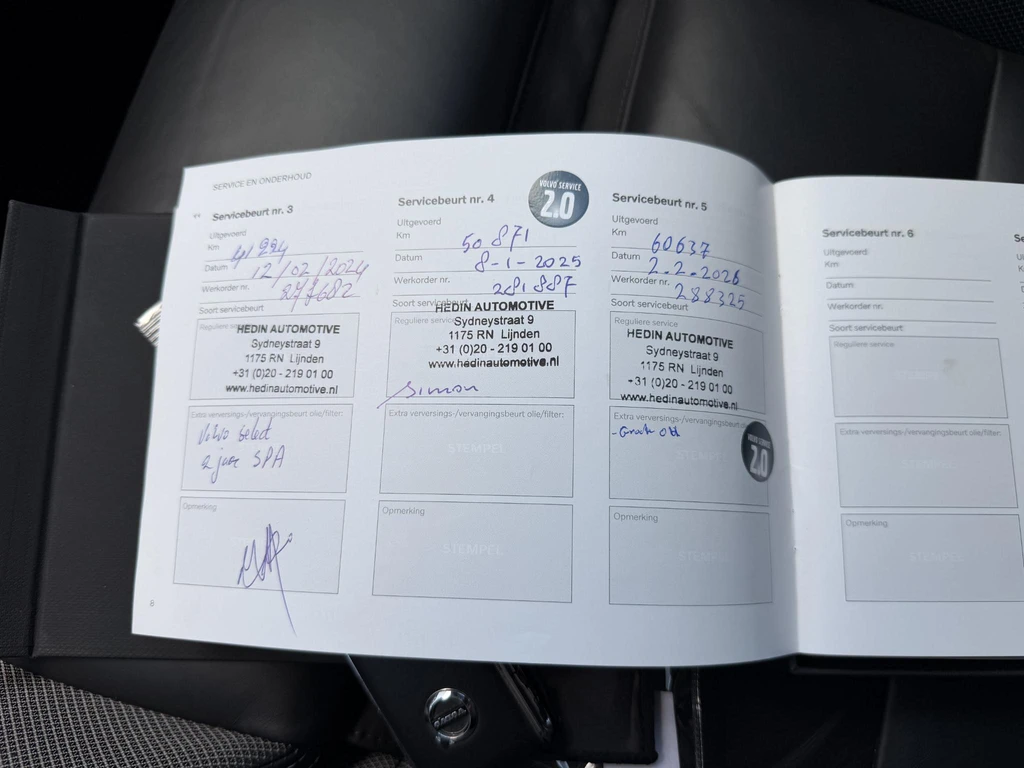 SERVICE EN ONDERHOUD
Servicebeurt nr. 3
Uitgevoerd
Km 41 224
Datum 12/02/2024
Werkorder nr. 277682
Soort servicebeurt
Reguliere service
HEDIN AUTOMOTIVE
Sydneystraat 9
1175 RN Lijnden
+31 (0)20 - 219 01 00
www.hedinautomotive.nl
Extra verversings-/vervangingsbeurt olie/filter:
Volvo Select
2 jaar SPA
Opmerking
6
Servicebeurt nr. 4
VOLVO SERVICE
2.0
Uitgevoerd
Km 50 871
Datum 8-1-2025
Werkorder nr. 281887
Soort servicebeurt
Reguliere service
HEDIN AUTOMOTIVE
Sydneystraat 9
1175 RN Lijnden
+31 (0)20 - 219 01 00
www.hedinautomotive.nl
Simon
Extra verversings-/vervangingsbeurt olie/filter:
STEMPEL
Opmerking
STEMPEL
Servicebeurt nr. 5
Uitgevoerd
Km 60637
Datum 2.2.2026
Werkorder nr. 288325
Soort servicebeurt
Reguliere service
HEDIN AUTOMOTIVE
Sydneystraat 9
1175 RN Lijnden
+31 (0)20 - 219 01 00
www.hedinautomotive.nl
Extra verversings-/vervangingsbeurt
STEMPEL
VOLVO SERVICE
2.0
Opmerking
STEMPEL
Servicebeurt nr. 6
Uitgevoerd:
Km:
Datum:
Werkorder nr.
Soort servicebeurt:
Reguliere service
Extra verversings-/vervangingsbeurt olie/filter:
STEMPEL
Opmerking
STEMPEL
VOLVO